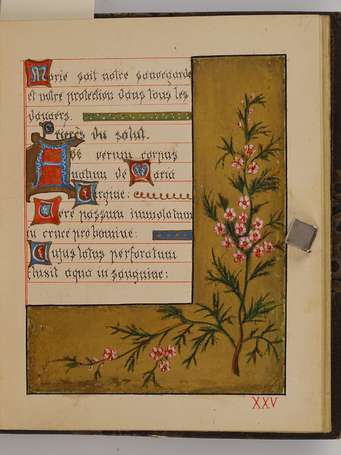 Marie soit notre sauvegarde
et notre protection dans tous les
dangers.
Prières du salut.
Ave verum corpus
natum de Maria
Virgine:
Vere passum immolatum
in cruce pro homine:
Cujus latus perforatum
fluxit aqua in sanguine:
XXV